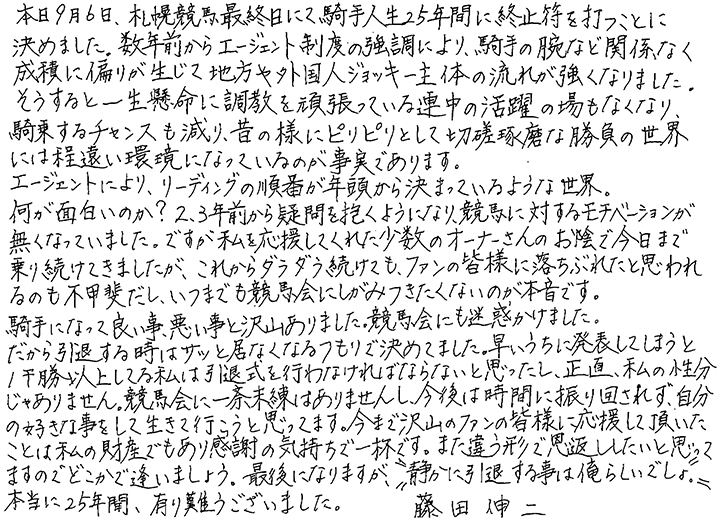 本日9月6日、札幌競馬最終日にて騎手人生25年間に終止符を打つことに
決めました。数年前からエージェント制度の強調により、騎手の腕など関係なく
成積に偏りが生じて地方や外国人ジョッキー主体の流れが強くなりました。
そうすると一生懸命に調教を頑張っている連中の活躍の場もなくなり、
騎乗するチャンスも減り、昔の様にピリピリとして切磋琢磨な勝負の世界
には程遠い環境になっているのが事実であります。
エージェントにより、リーディングの順番が年頭から決まっているような世界。
何が面白いのか？2、3年前から疑問を抱くようになり、競馬に対するモチベーションが
無くなっていました。ですが私を応援してくれた少数のオーナーさんのお陰で今日まで
乗り続けてきましたが、これからダラダラ続けても、ファンの皆様に落ちぶれたと思われ
るのも不甲斐だし、いつまでも競馬会にしがみつきたくないのが本音です。
騎手になって良い事、悪い事と沢山ありました。競馬会にも迷惑かけました。
だから引退する時はサッと居なくなるつもりで決めてました。早いうちに発表してしまうと
1千勝以上してる私は引退式を行わなければならないと思ったし、正直、私の性分
じゃありません。競馬会に一条未練はありませんし、今後は時間に振り回されず、自分
の好きな事をして生きて行こうと思ってます。今まで沢山のファンの皆様に応援して頂いた
ことは私の財産でもあり感謝の気持ちで一杯です。また違う形で恩返ししたいと思って
ますのでどこかで逢いましょう。最後になりますが、〝静かに引退する事は俺らしいでしょ。〟
本当に25年間、有り難うございました。 藤田伸二